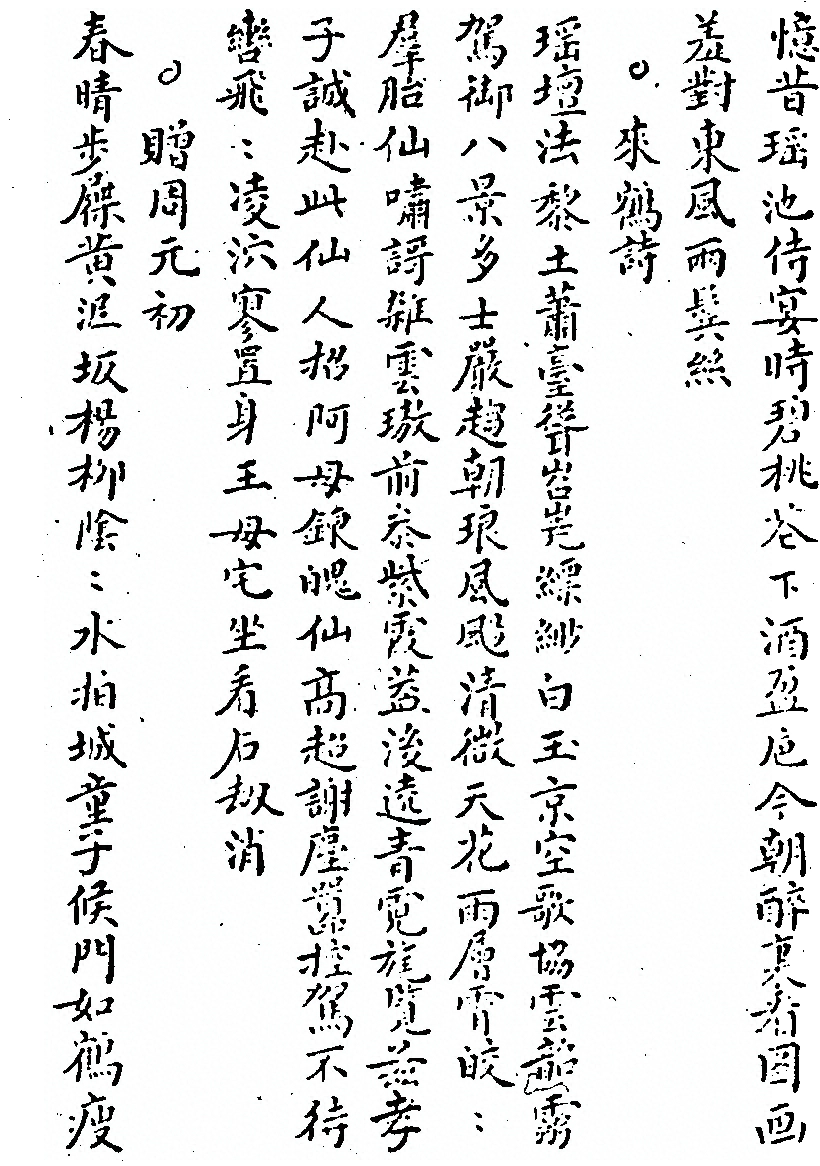 憶昔瑶池侍宴時碧桃花下酒盈巵今朝醉裏看圖画
羞對東風兩鬓絲
。來鶴詩
瑶壇法黎土蕭臺聳岧嶤縹緲白玉京空歌協雲韶霱
駕御八景多士嚴趨朝琅風颭清微天花雨層霄皎〻
羣胎仙嘯謌雜雲璈前叅紫霞蓋後遶青霓旄覽兹孝
子誠赴此仙人招阿母錬魄仙高超謝塵嚣控駕不待
鸞飛〻凌泬寥置身王母宅坐看石劫消
。贈周元初
春晴步屧黄泥坂楊柳陰〻水拍城童子候門如鶴瘦